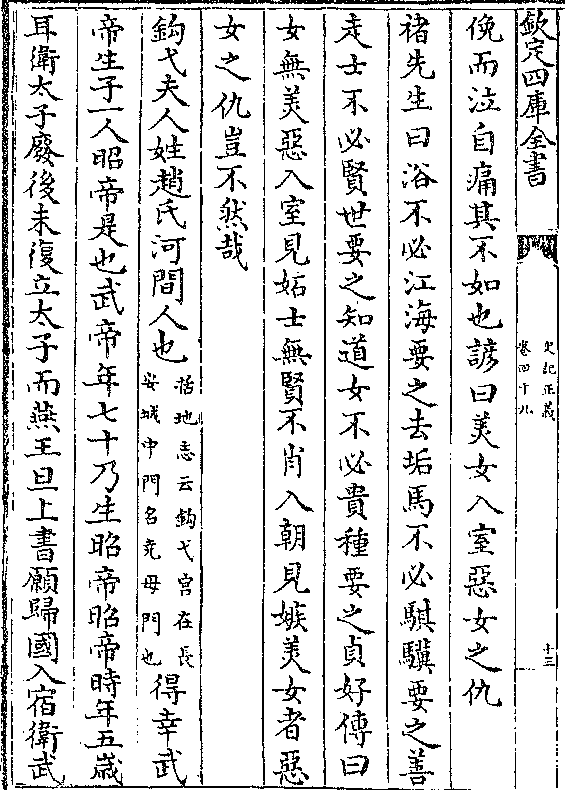 欽定四庫全書
史記正義
卷四十九
十三
俛而泣自痛其不如也諺曰美女入室惡女之仇
褚先生曰浴不必江海要之去垢馬不必騏驥要之善
走士不必賢世要之知道女不必貴種要之貞好傳曰
女無美惡入室見妬士無賢不肖入朝見嫉美女者惡
女之仇豈不然哉
鈎弋夫人姓趙氏河間人也
括地志云鈎弋宫在長
安城中門名堯母門也
得幸武
帝生子一人昭帝是也武帝年七十乃生昭帝昭帝時年五歲
耳衛太子廢後未復立太子而燕王旦上書願歸國入宿衛武